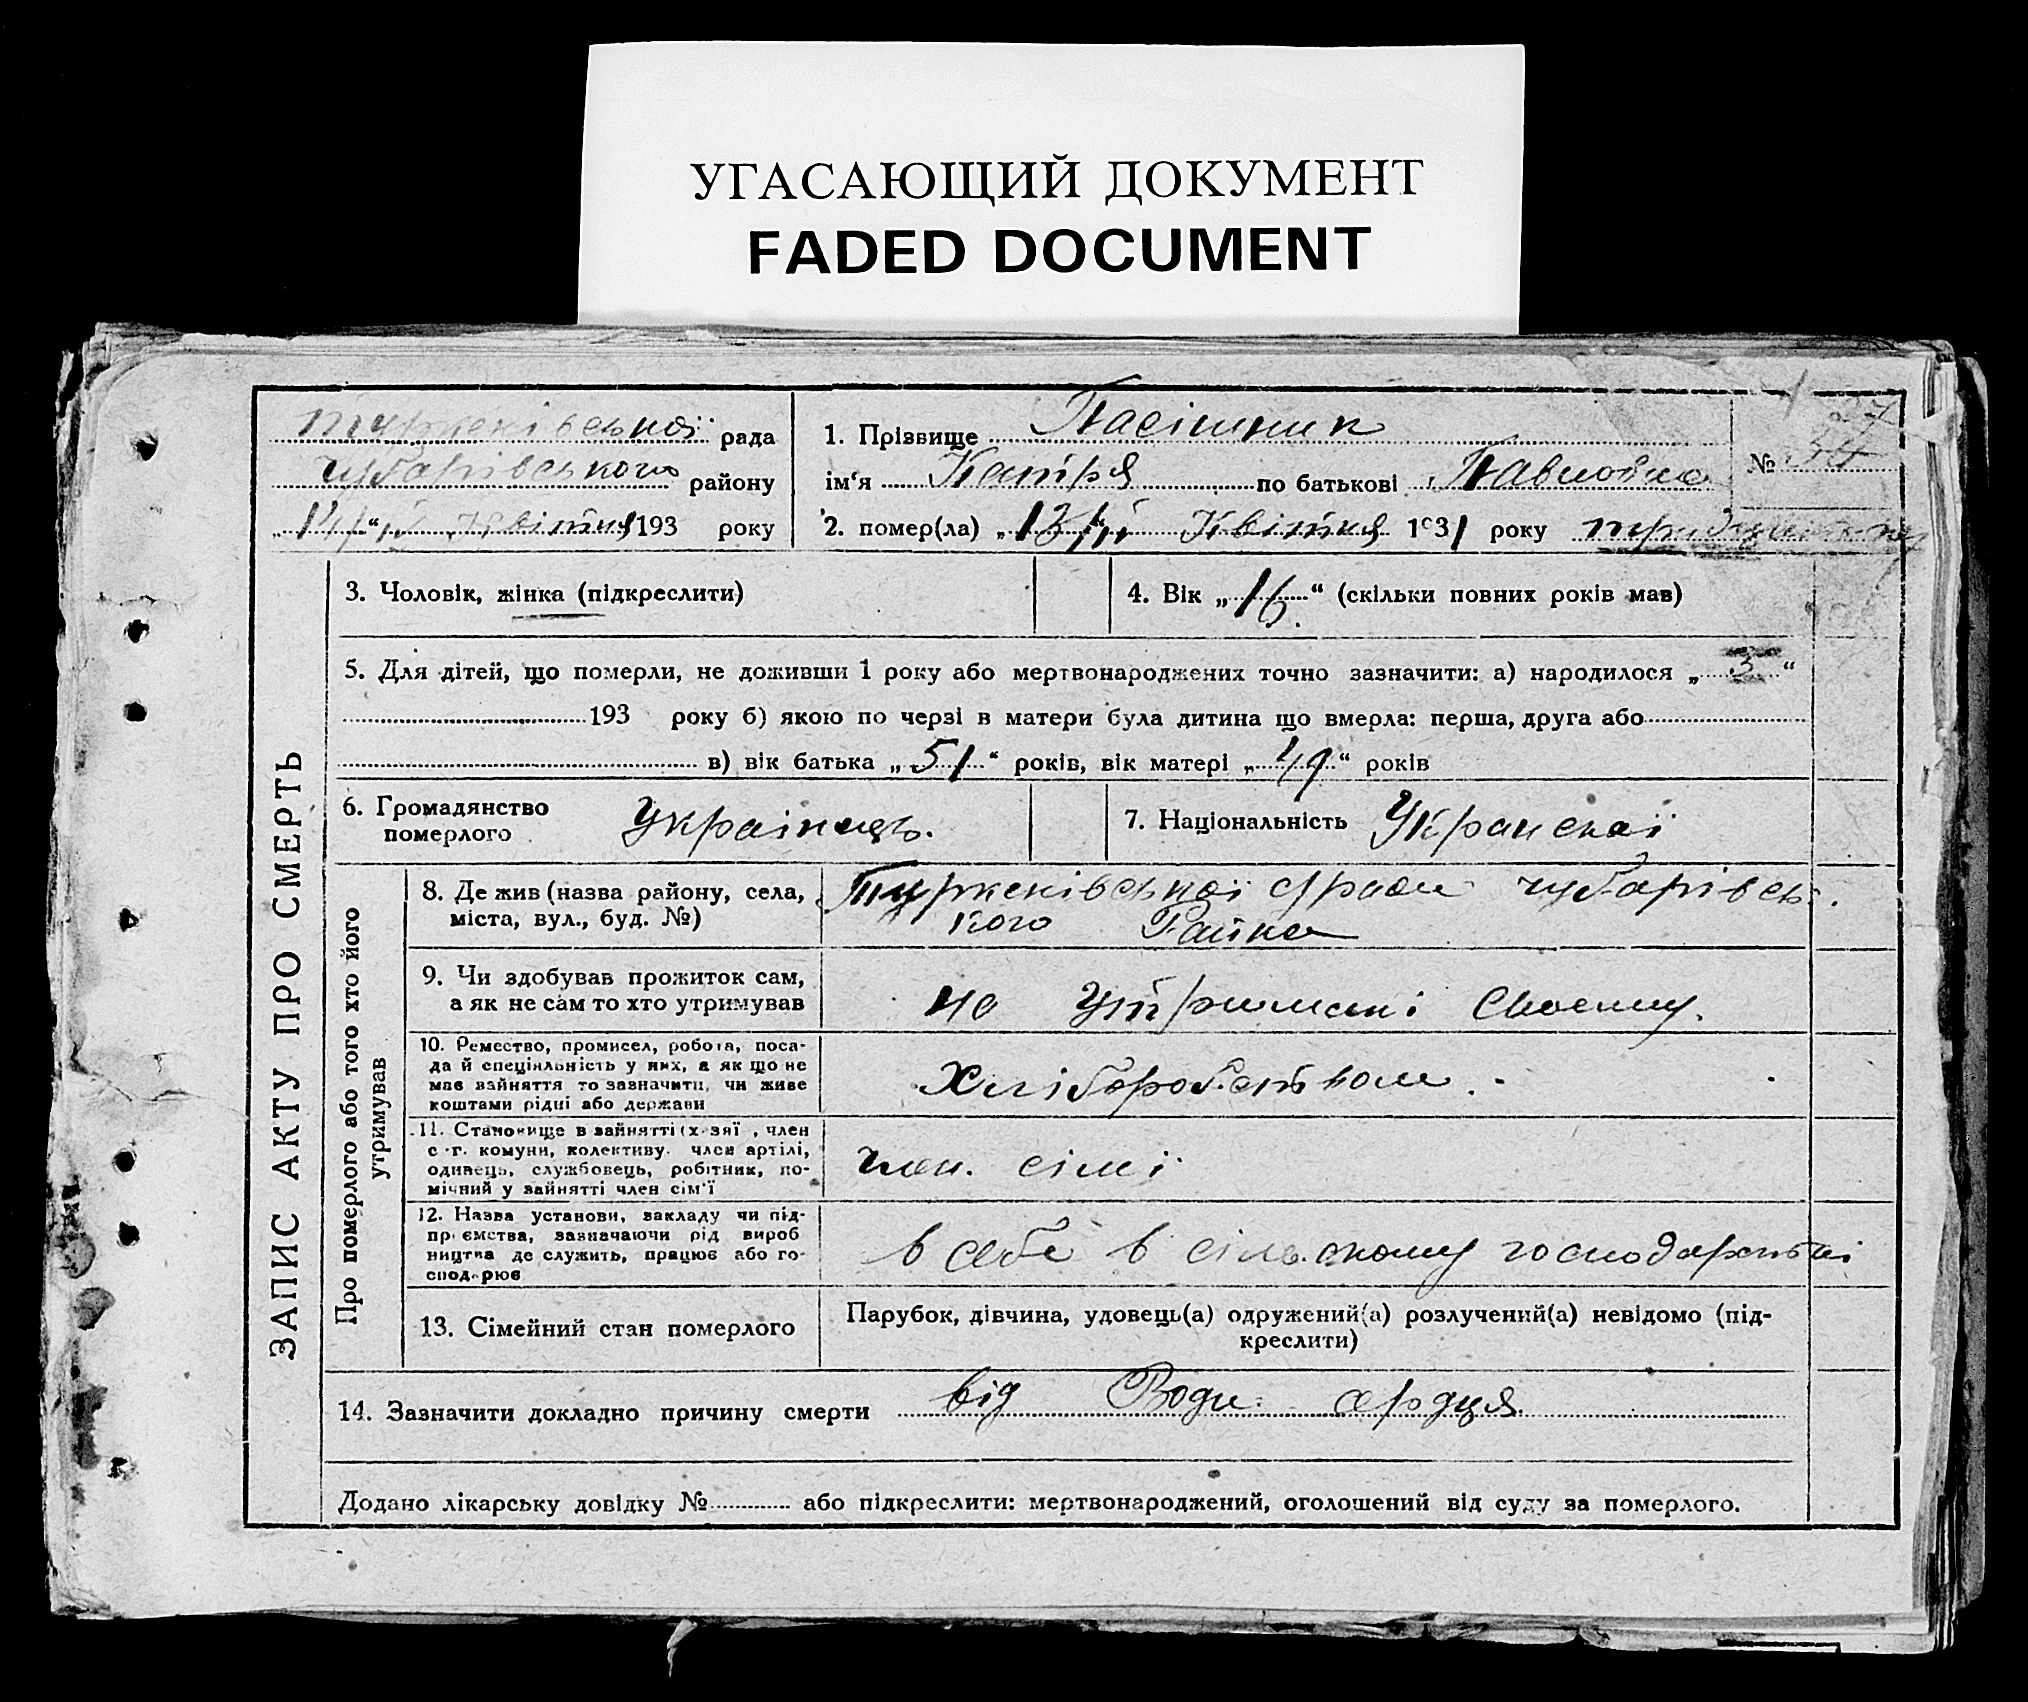 УГАСАЮЩИЙ ДОКУМЕНТ
FADED DOCUMENT
Туркенівської рада
Чубарівського району
„14/IV“ Квітня 193 року
1. Прізвище Пасішник
ім'я Катря по батькові Павловна
2. помер(ла) „13/IV“ Квітня 1931 року
№
27
ЗАПИС АКТУ ПРО СМЕРТЬ
3. Чоловік, жінка (підкреслити)
4. Вік „16“ (скільки повних років мав)
5. Для дітей, що померли, не доживши 1 року або мертвонароджених точно зазначити: а) народилося „3“
193 року б) якою по черзі в матери була дитина що вмерла: перша, друга або
в) вік батька „51“ років, вік матері „49“ років
6. Громадянство
померлого
Українець.
7. Національність Укранскаї
Про померлого або того хто його
утримував
8. Де жив (назва району, села,
міста, вул., буд. №)
Туркенівської сради Чубарівсь
кого Райна
9. Чи здобував прожиток сам,
а як не сам то хто утримував
на Утримані Своєму.
10. Ремество, промисел, робота, поса-
да й спеціяльність у них, а як що не
має зайняття то зазначити, чи живе
коштами рідні або держави
Хліборобством.
11. Становище в зайнятті (х-зяї , член
с.-г. комуни, колективу. член артілі,
одинець, службовець, робітник, по-
мічний у зайнятті член сім'ї
член. сімї
12. Назва установи, закладу чи під-
приємства, зазначаючи рід вироб
ництва де служить, працює або го-
сподарює
в себе в сільскому господарстві
13. Сімейний стан померлого
Парубок, дівчина, удовець(а) одружений(а) розлучений(а) невідомо (під-
креслити)
14. Зазначити докладно причину смерти від Води сердця
Додано лікарську довідку № або підкреслити: мертвонароджений, оголошений від суду за померлого.